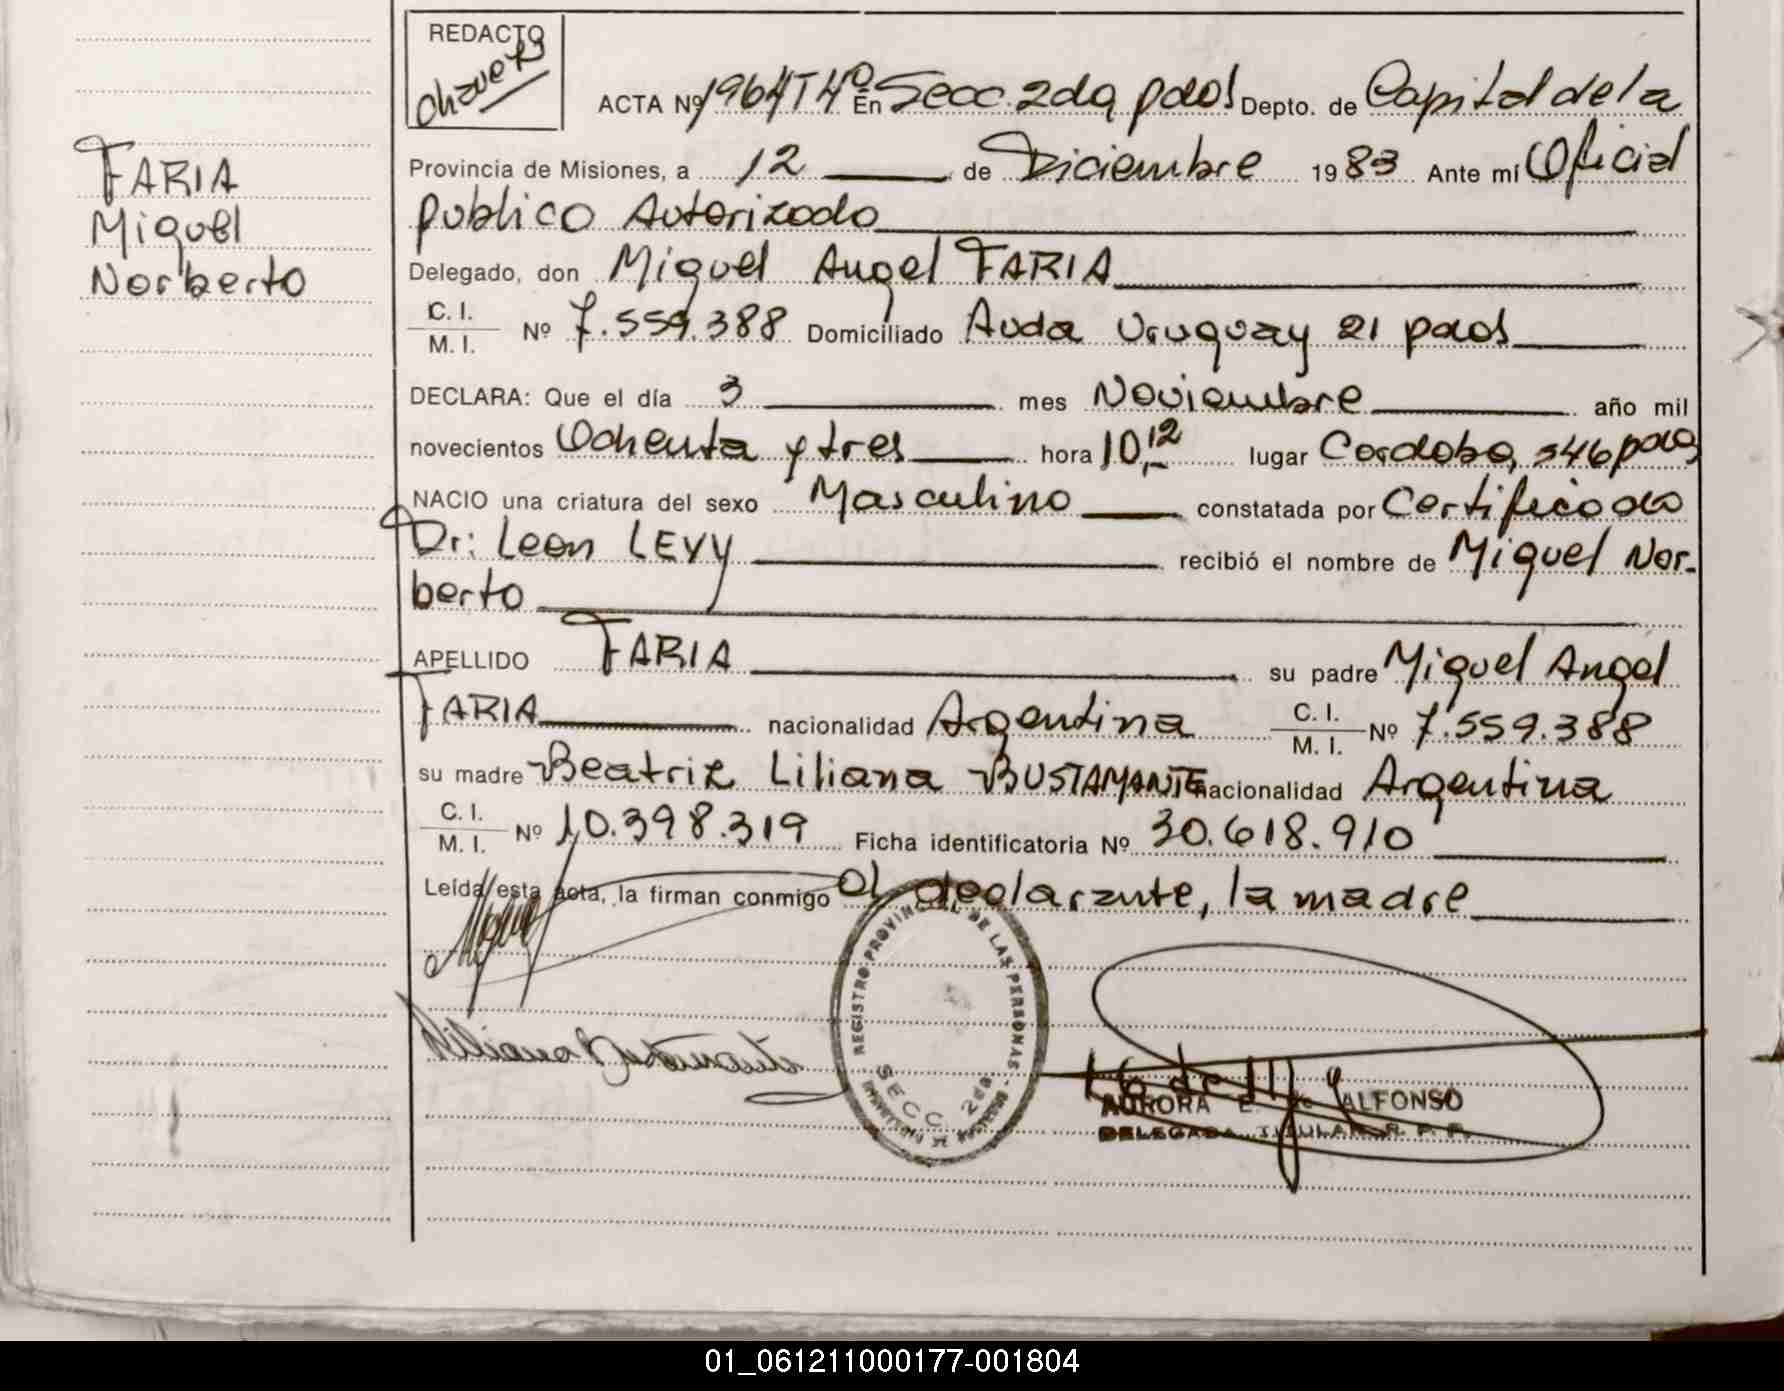 REDACTO
Chavez
ACTA Nº 1964 T 4º En Secc. 2da pdas Depto. de Capital de la
Provincia de Misiones, a 12 de Diciembre 1983 Ante mí Oficial
publico Autorizado
Delegado, don Miguel Angel FARIA
C. I.
M. I. Nº 7.559.388 Domiciliado Avda Uruguay 21 pdas
DECLARA: Que el día 3 mes Noviembre año mil
novecientos Ochenta y tres hora 10,12 lugar Cordoba, 546 pdas
NACIO una criatura del sexo Masculino constatada por Certificado
Dr: Leon LEVY recibió el nombre de Miguel Nor-
berto
APELLIDO FARIA su padre Miguel Angel
FARIA nacionalidad Argentina C. I.
M. I. Nº 7.559.388
su madre Beatriz Liliana BUSTAMANTE nacionalidad Argentina
C. I.
M. I. Nº 10.398.319 Ficha identificatoria Nº 30.618.910
Leída esta acta, la firman conmigo el declarante, la madre
FARIA
Miguel
Norberto
Liliana Bustamante
REGISTRO PROVINCIAL DE LAS PERSONAS
SECC 2da
AURORA E. de ALFONSO
DELEGADA TITULAR R. P. P.
01_061211000177-001804